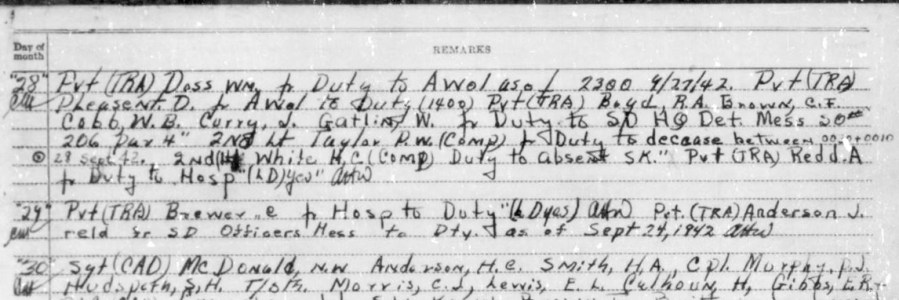 Day of month REMARKS
"28" Pvt (TRA) Doss Wm. fr Duty to AWol as of 2300 9/27/42. Pvt (TRA)
Pleasent D. fr AWol to Duty (1400) Pvt (TRA) Boyd, R.A. Brown, C.F.
Cobb, W.B. Curry, J. Gatlin, W. fr Duty to SD HQ Det. Mess SO#
206 Par 4" 2nd Lt Taylor P.W. (Comp) fr Duty to decease between 00:2+0010
28 Sept 42, 2nd Lt White H.C. (Comp) Duty to absent SK." Pvt (TRA) Redd. A
fr Duty to Hosp "(LD) yes"
"29" Pvt (TRA) Brewer fr Hosp to Duty "(LD yes) Pvt. (TRA) Anderson J.
reld fr SD Officers Mess to Dty. as of Sept 24, 1942
"30" Sgt (CAD) McDonald, N.W. Anderson, H.C. Smith, H.A, Cpl. Murphy, P.J.
Hudspeth, S.H. T/5th. Morris, C.J, Lewis, E.L. Calhoun, H, Gibbs, E.R.